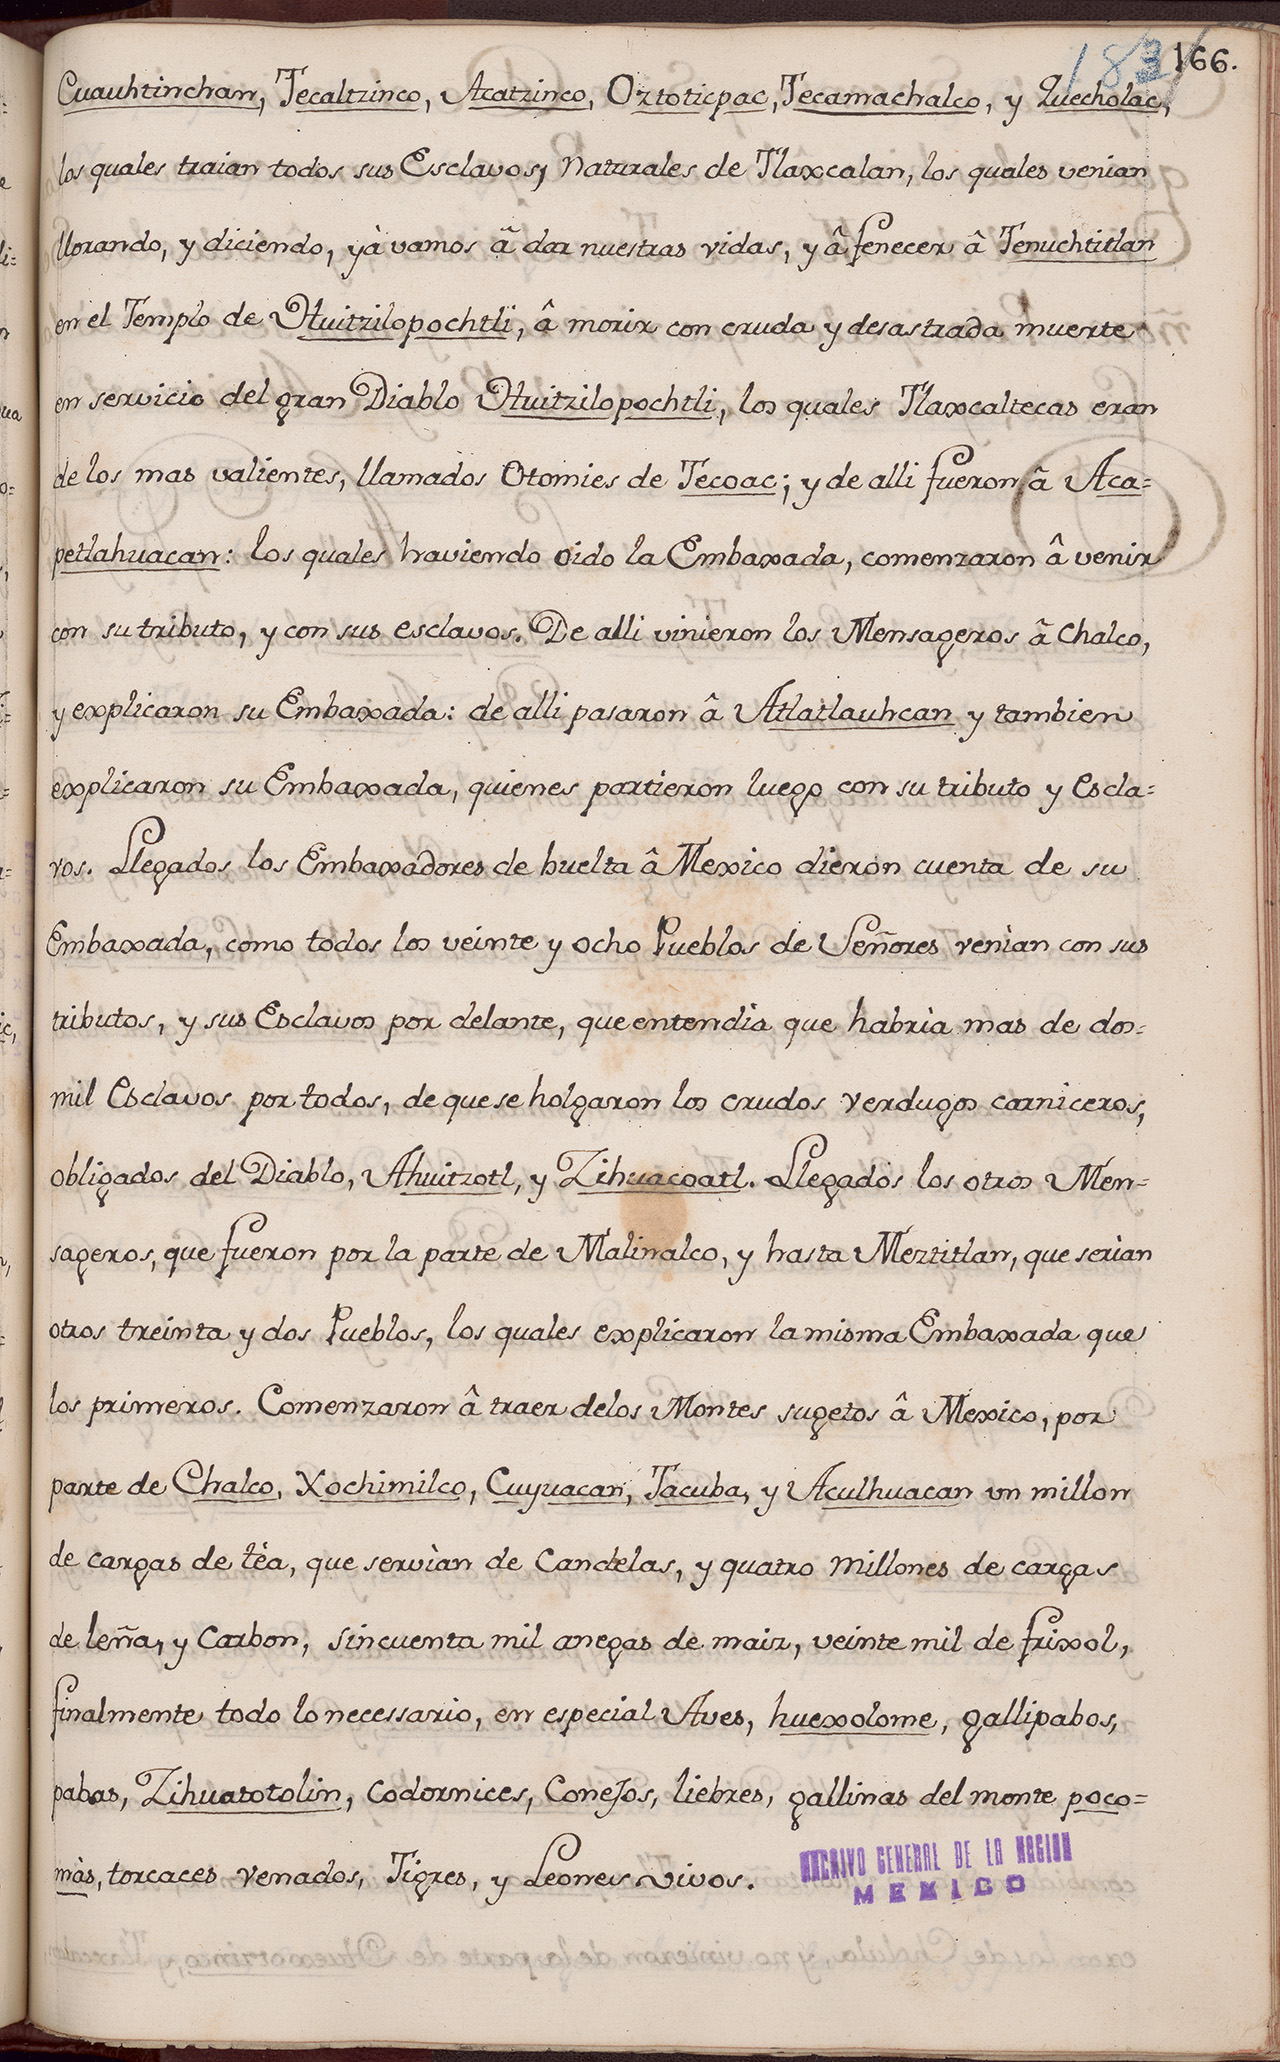 166.
Cuauhtinchan, Tecaltzinco, Acatzinco, Oztoticpac, Tecamachalco, y Quecholac,
los quales traian todos sus Esclavos, Naturales de Tlaxcalan, los quales venian
llorando, y diciendo, yà vamos â dar nuestras vidas, y â fenecer â Tenuchtitlan
en el Templo de Huitzilopochtli, â morir con cruda y desastrada muerte
en servicio del gran Diablo Huitzilopochtli, los quales Tlaxcaltecas eran
de los mas valientes, llamados Otomies de Tecoac; y de alli fueron â Aca=
petlahuacan: los quales haviendo oido la Embaxada, comenzaron â venir
con su tributo, y con sus esclavos. De alli vinieron los Mensageros â Chalco,
y explicaron su Embaxada: de alli pasaron â Atlatlauhcan y tambien
explicaron su Embaxada, quienes partieron luego con su tributo y Escla=
vos. Llegados los Embaxadores de huelta â Mexico dieron cuenta de su
Embaxada, como todos los veinte y ocho Pueblos de Señores venìan con sus
tributos, y sus Esclavos por delante, que entendia que habrìa mas de dos=
mil Esclavos por todos, de que se holgaron los crudos verdugos carniceros,
obligados del Diablo, Ahuitzotl, y Zihuacoatl. Llegados los otros Men=
sageros, que fueron por la parte de Malinalco, y hasta Meztitlan, que serìan
otros treinta y dos Pueblos, los quales explicaron la misma Embaxada que
los primeros. Comenzaron â traer delos Montes sugetos â Mexico, por
parte de Chalco, Xochimilco, Cuyuacan, Tacuba, y Aculhuacan un millon
de cargas de tèa, que servìan de Candelas, y quatro Millones de cargas
de leña, y Carbon, sincuenta mil anegas de maiz, veinte mil de frixol,
finalmente todo lo necessario, en especial Aves, huexolome, gallipabos,
pabas, Zihuatotolin, Codornices, Conejos, liebres, gallinas del monte poco=
màs, torcaces venados, Tigres, y Leones vivos.
ARCHIVO GENERAL DE LA NACION
MEXICO